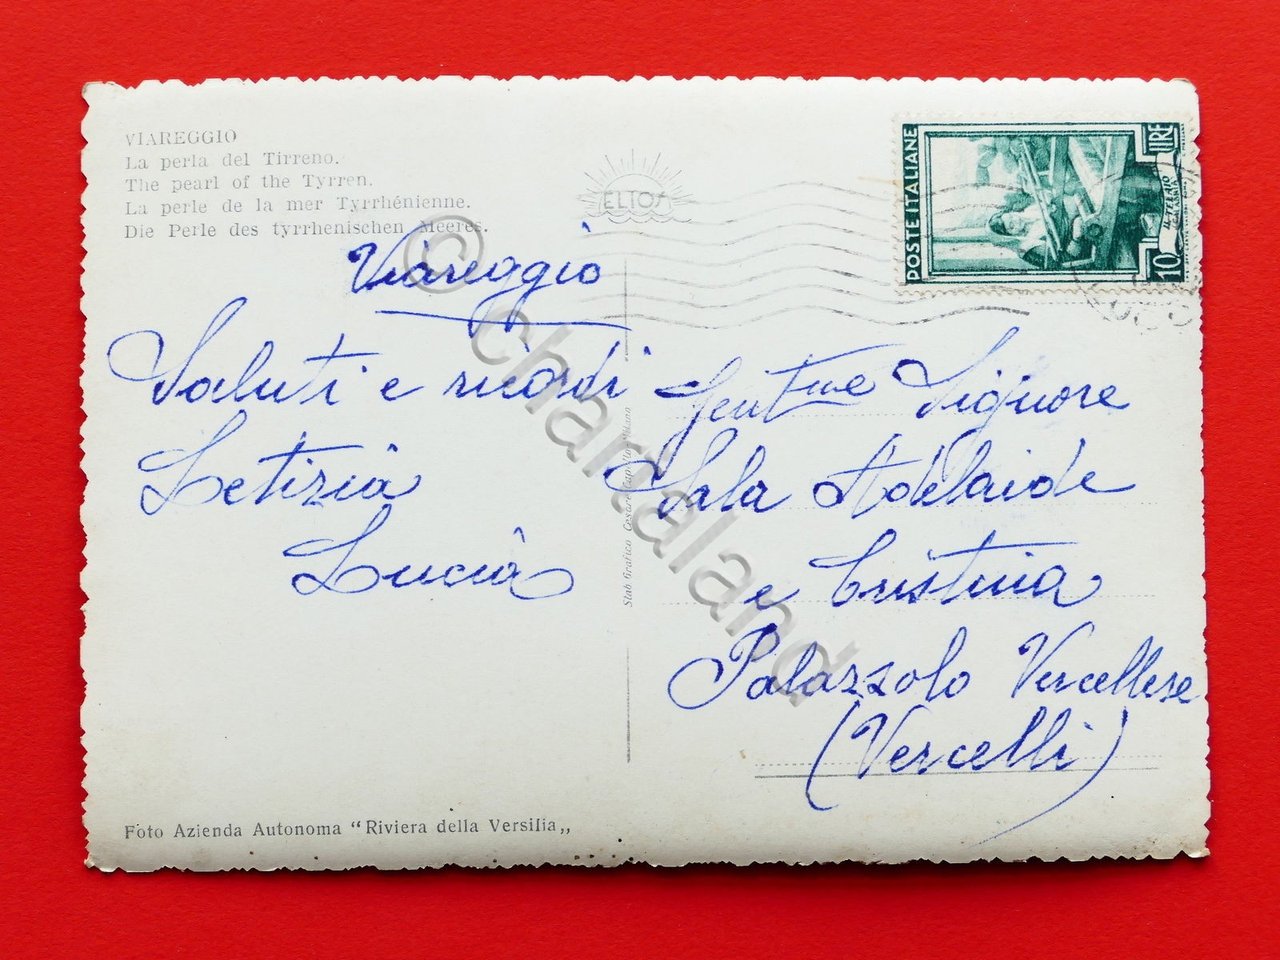 VIAREGGIO
La perla del Tirreno.
The pearl of the Tyrren.
La perle de la mer Tyrrhénienne.
Die Perle des tyrrhenischen Meeres.
ELIOS
POSTE ITALIANE
10 LIRE
Viareggio
Saluti e ricordi
Letizia
Lucia
Gent.me Signore
Sala Adelaide
e Cristina
Palazzolo Vercellese
(Vercelli)
Stab Grafico Cesare Capello Milano
Foto Azienda Autonoma “Riviera della Versilia„
© chartaland